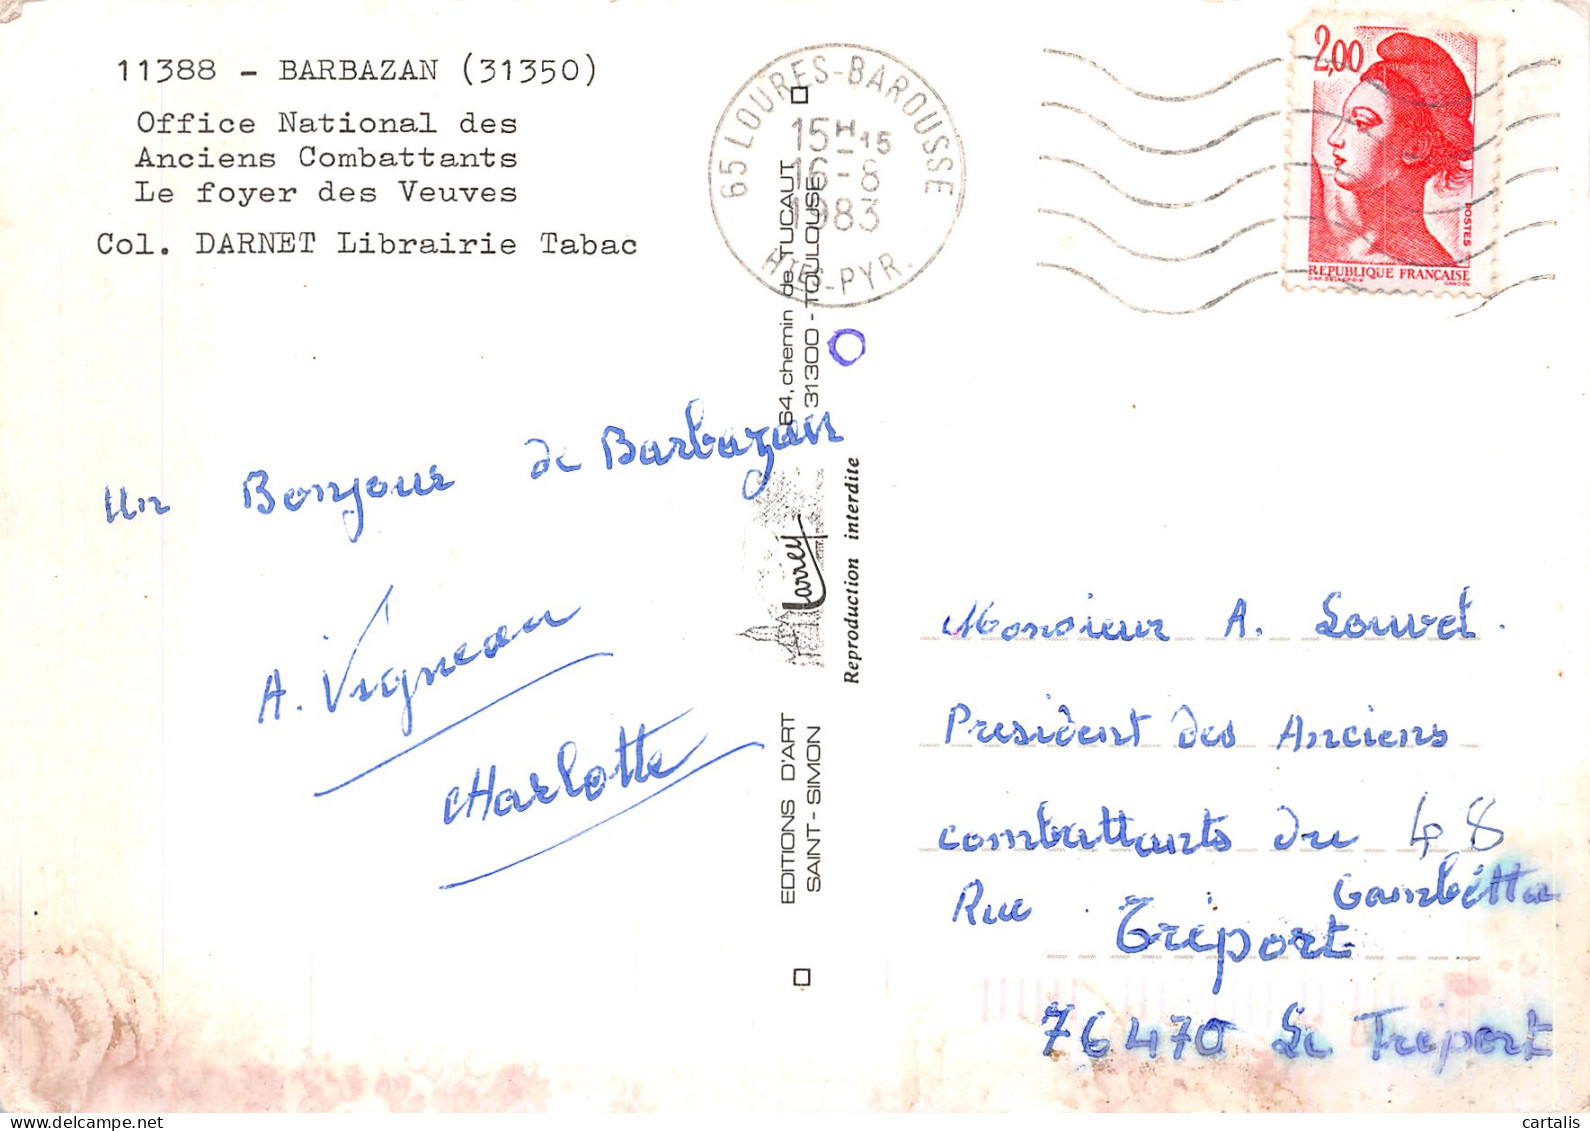 11388 - BARBAZAN (31350)
Office National des
Anciens Combattants
Le foyer des Veuves
Col. DARNET Librairie Tabac
65 LOURES-BAROUSSE
15H15
16-8
1983
HTES-PYR.
2,00
POSTES
REPUBLIQUE FRANÇAISE
GANDON
64, chemin de TUCAUT
31300 - TOULOUSE
Larrey
Reproduction interdite
EDITIONS D'ART
SAINT-SIMON
un Bonjour de Barbazan
A. Vigneau
Charlotte
Monsieur A. Louvet.
President des Anciens
combattants du 48
Rue Gambétta
Tréport
76470 Le Treport
cartalis